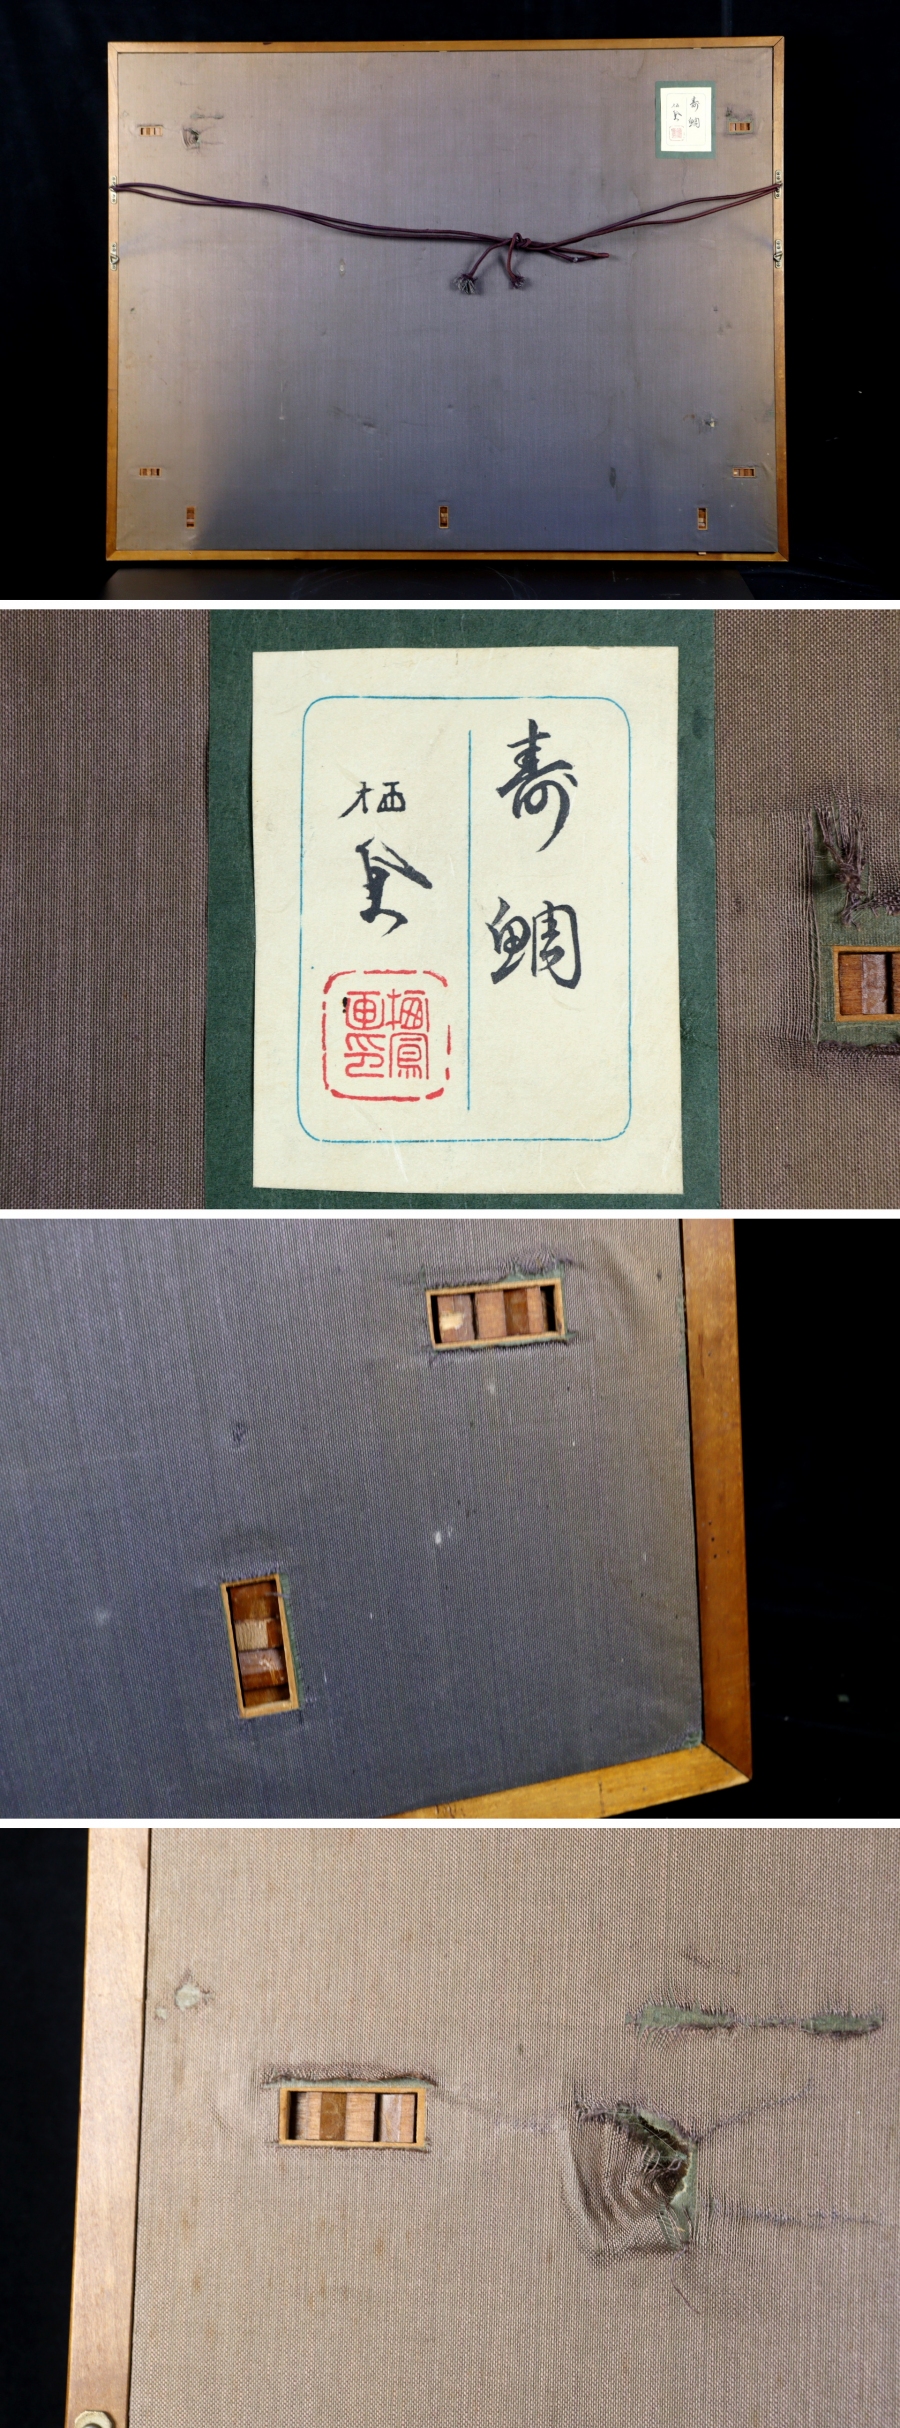 寿鯛
栖鳳
鳳
画印